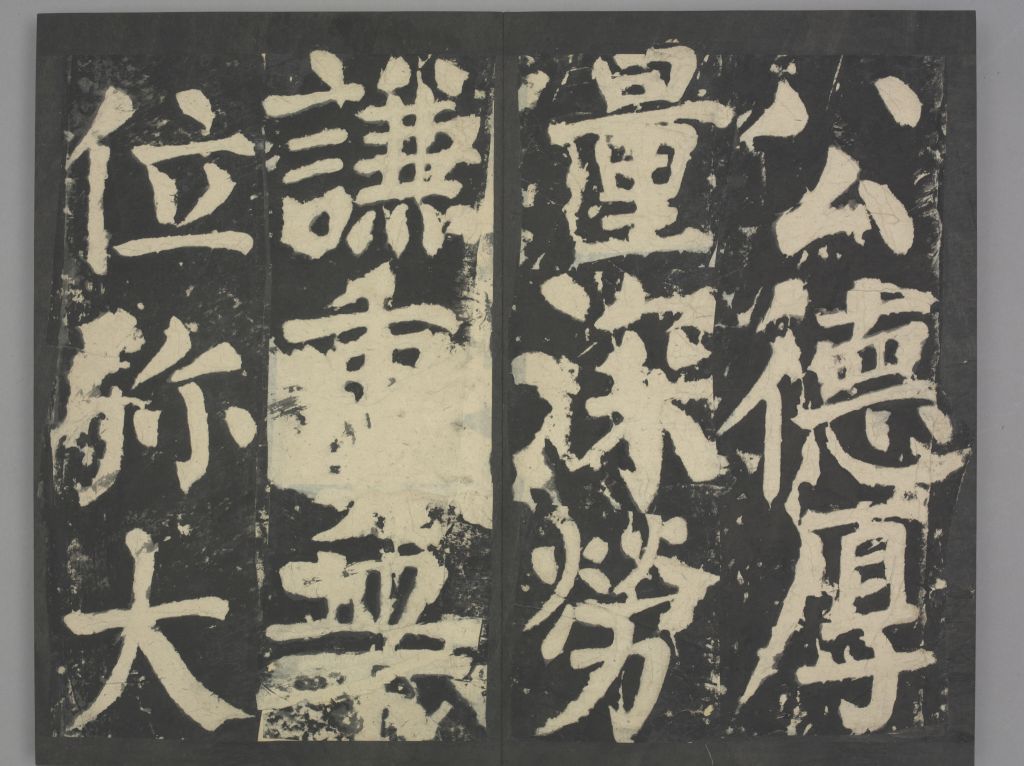 公德厚
量深勞
謙無
位弥大